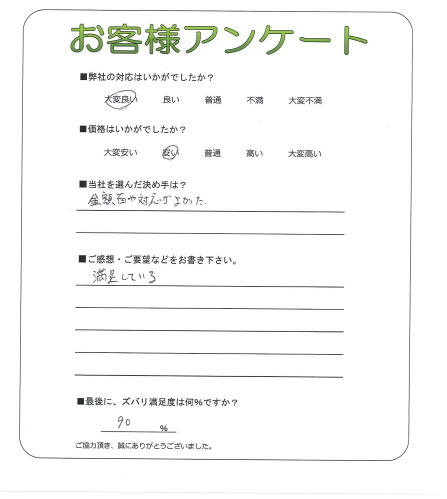 お客様アンケート
■弊社の対応はいかがでしたか？
大変良い 良い 普通 不満 大変不満
■価格はいかがでしたか？
大変安い 安い 普通 高い 大変高い
■当社を選んだ決め手は？
金額面や対応がよかった
■ご感想・ご要望などをお書き下さい。
満足している
■最後に、ズバリ満足度は何%ですか？
90 %
ご協力頂き、誠にありがとうございました。